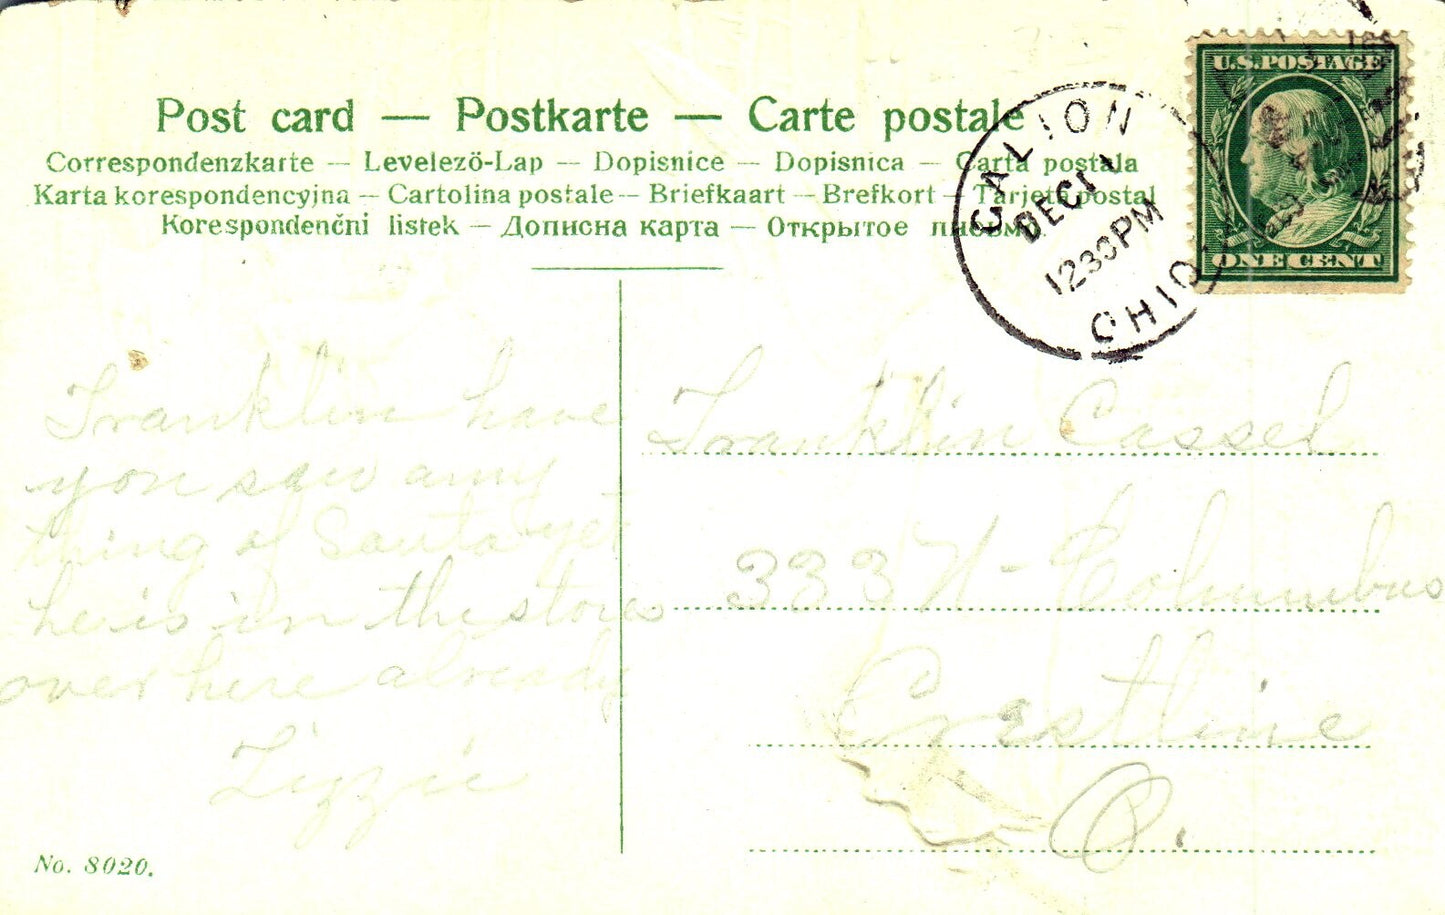 Post card — Postkarte — Carte postale
Correspondenzkarte — Levelező-Lap — Dopisnice — Dopisnica — Carta postala
Karta korespondencyjna — Cartolina postale — Briefkaart — Brefkort — Tarjeta postal
Korespondenčni listek — Дописна карта — Открытое письмо
GALION
DEC
1230PM
OHIO
U.S. POSTAGE
ONE CENT
Franklin have
you saw any
thing of Santa yet
he is in the stores
over here already
Lizzie
Franklin Cassel
333 N- Columbus
Crestline
O.
No. 8020.